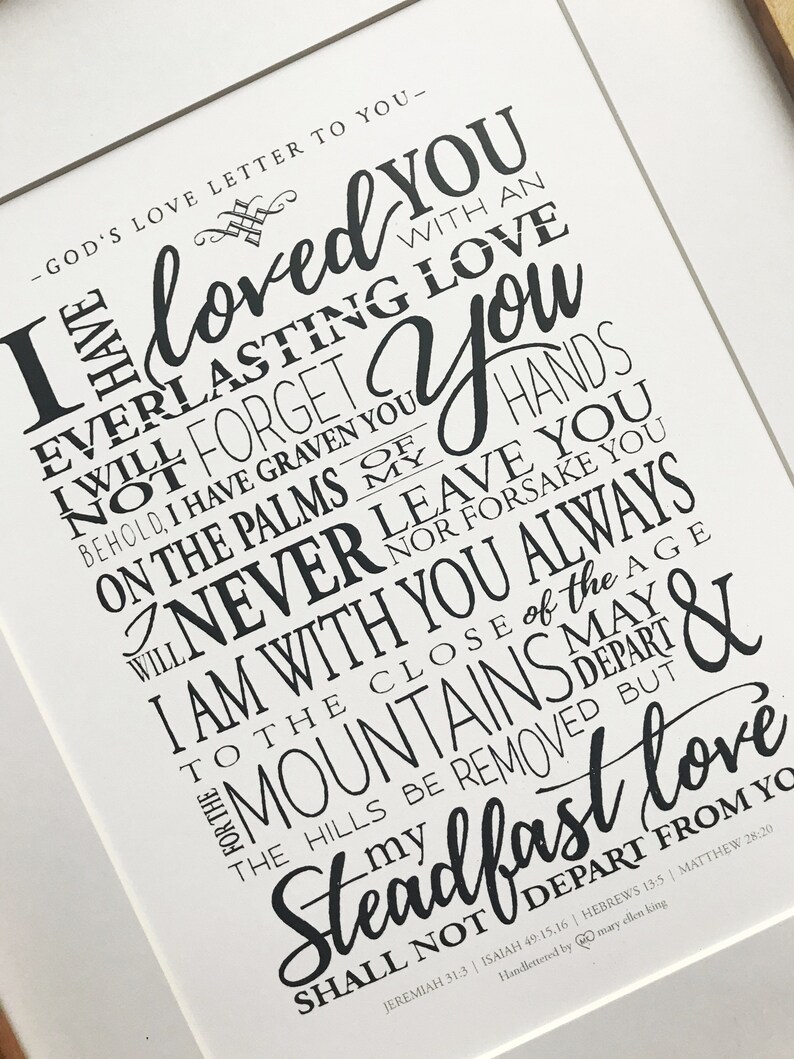 –GOD'S LOVE LETTER TO YOU–
I HAVE loved YOU
WITH AN
EVERLASTING LOVE
I WILL NOT FORGET You
BEHOLD, I HAVE GRAVEN YOU
ON THE PALMS OF MY HANDS
I WILL NEVER LEAVE YOU
NOR FORSAKE YOU
I AM WITH YOU ALWAYS
TO THE CLOSE of the AGE
FOR THE MOUNTAINS MAY DEPART &
THE HILLS BE REMOVED BUT
my Steadfast love
SHALL NOT DEPART FROM YO
JEREMIAH 31:3 | ISAIAH 49:15,16 | HEBREWS 13:5 | MATTHEW 28:20
Handlettered by ME mary ellen king